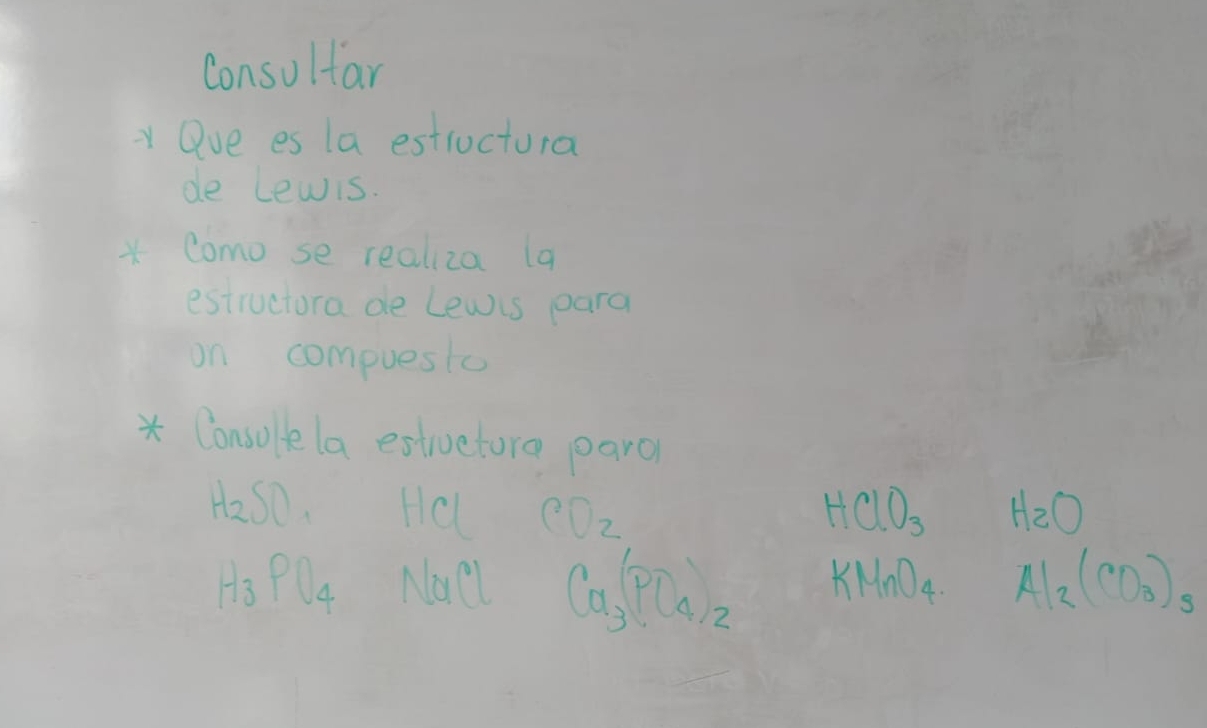 Consultar
* Que es la estructura
de Lewis.
* Como se realiza la
estructura de Lewis para
un compuesto
* Consulte la estructura para
H₂SO. HCl CO₂ HClO₃ H₂O
H₃PO₄ NaCl Ca₃(PO₄)₂ KMnO₄. Al₂(CO₃)₃